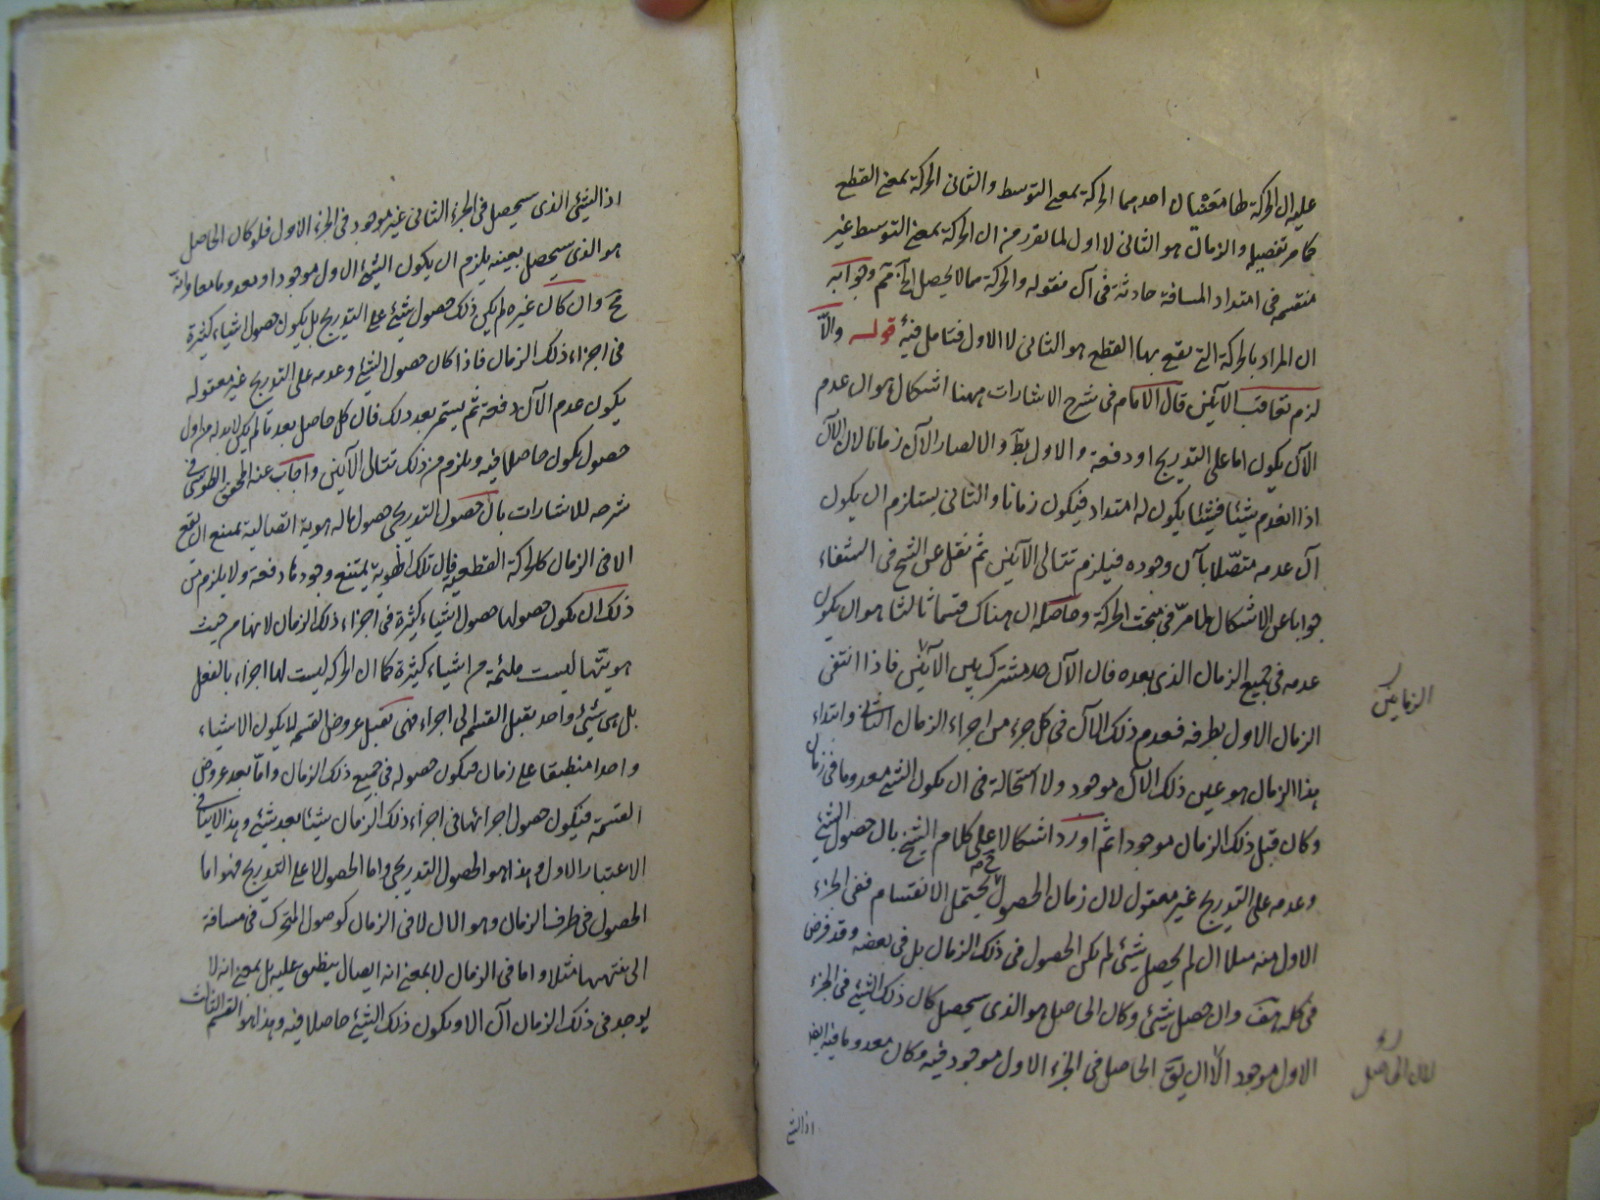 عليه ان الحركة لها معنيان احدهما الحركة بمعنى التوسط والثانى الحركة بمعنى القطع
كما مر تفصيله والزمان هو الثانى لا الاول لما تقرر من ان الحركة بمعنى التوسط غير
منقسمة فى امتداد المسافة حادثة فى آن فقوله والحركة مما لا يحصل الخ مم وجوابه
ان المراد بالحركة التى يقع بها القطع هو الثانى لا الاول فتامل فيه قوله والا
لزم تعاقب الآنين قال الامام فى شرح الاشارات ههنا اشكال هو ان عدم
الآن يكون اما على التدريج او دفعة والاول بط والا لصار الآن زمانا لان الآن
اذا انعدم شيئا فشيئا يكون له امتداد فيكون زمانا والثانى يستلزم ان يكون
آن عدمه متصلا بآن وجوده فيلزم تتالى الآنين ثم نقل عن الشيخ فى الشفاء
جوابا عن الاشكال لما مر فى مبحث الحركة وحاصله ان هناك قسما ثالثا هو ان يكون
عدمه فى جميع الزمان الذى بعده فان الآن حد مشترك بين الآنين فاذا انتفى
الزمانين
الزمان الاول بطرفه فعدم ذلك الآن فى كل جزء من اجزاء الزمان الثانى وابتداء
هذا الزمان هو عين ذلك الآن موجود ولا استحالة فى ان يكون الشئ معدوما فى زمان
وكان قبل ذلك الزمان موجودا ثم اورد اشكالا على كلام الشيخ بان حصول الشئ
وعدمه على التدريج غير معقول لان زمان الحصول يحتمل الانقسام ففى الجزء
الاول منه مثلا ان لم يحصل شئ لم يكن الحصول فى ذلك الزمان بل فى بعضه وقد فرض
فى كله هف وان حصل شئ وكان الحاصل هو الذى سيحصل كان ذلك الشئ فى الجزء
الاول موجود الا ان يق الحاصل فى الجزء الاول موجود فيه وكان معدوما فيه ايض
لان الحاصل
اذ الشئ
اذ الشئ الذى سيحصل فى الجزء الثانى غير موجود فى الجزء الاول فلو كان الحاصل
هو الذى سيحصل بعينه يلزم ان يكون الشئ الاول موجودا ومعدوما معا وانه
مح وان كان غيره لم يكن ذلك حصول شئ على التدريج بل يكون حصول اشياء كثيرة
فى اجزاء ذلك الزمان فاذا كان حصول الشئ وعدمه على التدريج غير معقوله
يكون عدم الآن دفعة ثم يستمر بعد ذلك فان كل حاصل بعد ما لم يكن لا بد له من اول
حصول يكون حاصلا فيه ويلزم من ذلك تتالى الآنين واجاب عنه المحقق الطوسى فى
شرحه للاشارات بان حصول التدريجى حصول ما له هوية اتصالية يمتنع ان يقع
الا فى الزمان كالحركة القطعية فان تلك الهوية يمتنع وجودها دفعة ولا يلزم من
ذلك ان يكون حصولها حصول اشياء كثيرة فى اجزاء ذلك الزمان لانها من حيث
هويتها ليست ملتئمة من اشياء كثيرة كما ان الحركة ليست لها اجزاء بالفعل
بل هى شئ واحد يقبل القسمة الى اجزاء فهى قبل عروض القسمة لا يكون الا شيئا
واحدا منطبقا على زمان فيكون حصوله فى جميع ذلك الزمان واما بعد عروض
القسمة فيكون حصول اجزائها فى اجزاء ذلك الزمان شيئا بعد شئ وهذا لا ينافى
الاعتبار الاول وهذا هو الحصول التدريجى واما الحصول لا على التدريج فهو اما
الحصول فى طرف الزمان وهو الآن لا فى الزمان كوصول المتحرك فى مسافة
الى منتهاها مثلا واما فى الزمان لا بمعنى انه ايصال ينطبق عليه بل بمعنى انه لا
يوجد فى ذلك الزمان آن الا ويكون ذلك الشئ حاصلا فيه وهذا هو القسم الثالث